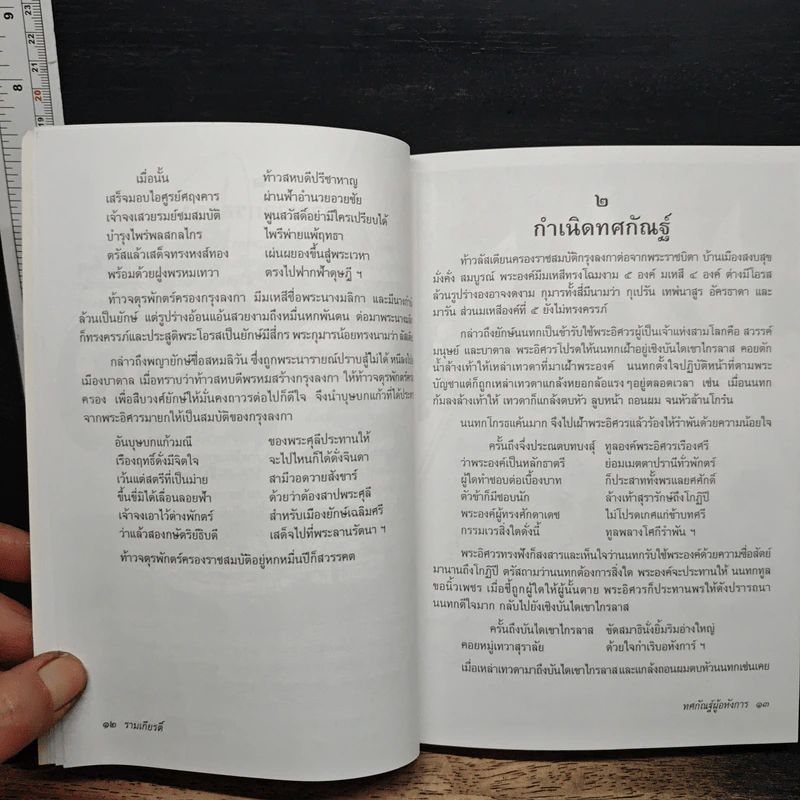 เมื่อนั้น ท้าวสหบดีปรีชาหาญ
เสร็จมอบไอศูรย์ศฤงคาร ผ่านฟ้าอำนวยอวยชัย
เจ้าจงเสวยรมย์ชมสมบัติ พูนสวัสดิ์อย่ามีใครเปรียบได้
บำรุงไพร่พลสกลไกร ไพรีพ่ายแพ้ฤทธา
ตรัสแล้วเสด็จทรงหงส์ทอง เผ่นผยองขึ้นสู่พระเวหา
พร้อมด้วยฝูงพรหมเทวา ตรงไปฟากฟ้าดุษฎี ฯ
ท้าวจตุรพักตร์ครองกรุงลงกา มีมเหสีชื่อพระนางมลิกา และมีนาง
ล้วนเป็นยักษ์ แต่รูปร่างอ้อนแอ้นสวยงามถึงหมื่นหกพันตน ต่อมาพระนาง
ก็ทรงครรภ์และประสูติพระโอรสเป็นยักษ์มีสี่กร พระกุมารน้อยทรงนามว่า
กล่าวถึงพญายักษ์ชื่อสหมลิวัน ซึ่งถูกพระนารายณ์ปราบสู้ไม่ได้ หนีลงไป
เมืองบาดาล เมื่อทราบว่าท้าวสหบดีพรหมสร้างกรุงลงกา ให้ท้าวจตุพักตร์
ครอง เพื่อสืบวงศ์ยักษ์ให้มั่นคงถาวรต่อไปก็ดีใจ จึงนำบุษบกแก้วที่ได้ประทาน
จากพระอิศวรมายกให้เป็นสมบัติของกรุงลงกา
อันบุษบกแก้วมณี ของพระศุลีประทานให้
เรืองฤทธิ์ดั่งมีจิตใจ จะไปไหนก็ได้ดั่งจินดา
เว้นแต่สตรีที่เป็นม่าย สามีวอดวายสังขาร์
ขึ้นขี่มิได้เลื่อนลอยฟ้า ด้วยว่าต้องสาปพระศุลี
เจ้าจงเอาไว้ต่างพักตร์ สำหรับเมืองยักษ์เฉลิมศรี
ว่าแล้วสองกษัตริย์ธิบดี เสด็จไปที่พระลานรัตนา ฯ
ท้าวจตุรพักตร์ครองราชสมบัติอยู่หกหมื่นปีก็สวรรคต
๑๒ รามเกียรติ์
๒
กำเนิดทศกัณฐ์
ท้าวลัสเตียนครองราชสมบัติกรุงลงกาต่อจากพระราชบิดา บ้านเมืองสงบสุข
มั่งคั่ง สมบูรณ์ พระองค์มีมเหสีทรงโฉมงาม ๕ องค์ มเหสี ๔ องค์ ต่างมีโอรส
ล้วนรูปร่างองอาจงดงาม กุมารทั้งสี่มีนามว่า กุเปรัน เทพนาสูร อัครธาดา และ
มารัน ส่วนมเหสีองค์ที่ ๕ ยังไม่ทรงครรภ์
กล่าวถึงยักษ์นนทกเป็นข้ารับใช้พระอิศวรผู้เป็นเจ้าแห่งสามโลกคือ สวรรค์
มนุษย์ และบาดาล พระอิศวรโปรดให้นนทกเฝ้าอยู่เชิงบันไดเขาไกรลาส คอยตัก
น้ำล้างเท้าให้เหล่าเทวดาที่มาเฝ้าพระองค์ นนทกตั้งใจปฏิบัติหน้าที่ตามพระ
บัญชาแต่ก็ถูกเหล่าเทวดาแกล้งหยอกล้อแรง ๆ อยู่ตลอดเวลา เช่น เมื่อนนทก
ก้มลงล้างเท้าให้ เทวดาก็แกล้งตบหัว ลูบหน้า ถอนผม จนหัวล้านโกร๋น
นนทกโกรธแค้นมาก จึงไปเฝ้าพระอิศวรแล้วร้องไห้รำพันด้วยความน้อยใจ
ครั้นถึงจึ่งประณตบทบงสุ์ ทูลองค์พระอิศวรเรืองศรี
ว่าพระองค์เป็นหลักธาตรี ย่อมเมตตาปรานีทั่วพักตร์
ผู้ใดทำชอบต่อเบื้องบาท ก็ประสาททั้งพรแลยศศักดิ์
ตัวข้าก็มีชอบนัก ล้างเท้าสุรารักษ์ถึงโกฏิปี
พระองค์ผู้ทรงศักดาเดช ไม่โปรดเกศแก่ข้าบทศรี
กรรมเวรสิ่งใดดั่งนี้ ทูลพลางโศกีรำพัน ฯ
พระอิศวรทรงฟังก็สงสารและเห็นใจว่านนทกรับใช้พระองค์ด้วยความซื่อสัตย์
มานานถึงโกฏิปี ตรัสถามว่านนทกต้องการสิ่งใด พระองค์จะประทานให้ นนทกทูล
ขอนิ้วเพชร เมื่อชี้ถูกผู้ใดให้ผู้นั้นตาย พระอิศวรก็ประทานพรให้ดังปรารถนา
นนทกดีใจมาก กลับไปยังเชิงบันไดเขาไกรลาส
ครั้นถึงบันไดเขาไกรลาส ขัดสมาธินั่งยิ้มริมอ่างใหญ่
คอยหมู่เทวาสุราลัย ด้วยใจกำเริบอหังการ์ ฯ
เมื่อเหล่าเทวดามาถึงบันไดเขาไกรลาสและแกล้งถอนผมตบหัวนนทกเช่นเคย
ทศกัณฐ์ผู้อหังการ ๑๓
9
8
23
22
21
20
19